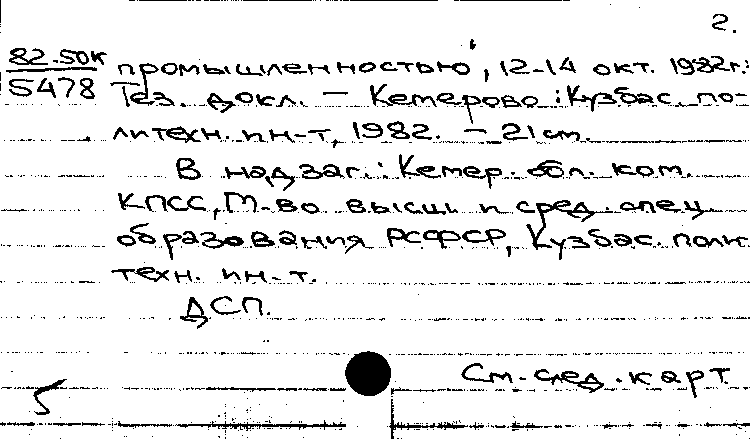 2.
82-50К
S478
промышленностью", 12-14 окт. 1982г.:
Тез. докл. — Кемерово: Кузбас. по-
литехн. ин-т, 1982. — 21 см.
В надзаг.: Кемер. обл. ком.
КПСС, М-во высш и сред. спец
образования РСФСР, Кузбас. поли
техн. ин-т.
ДСП.
См. след. карт
5